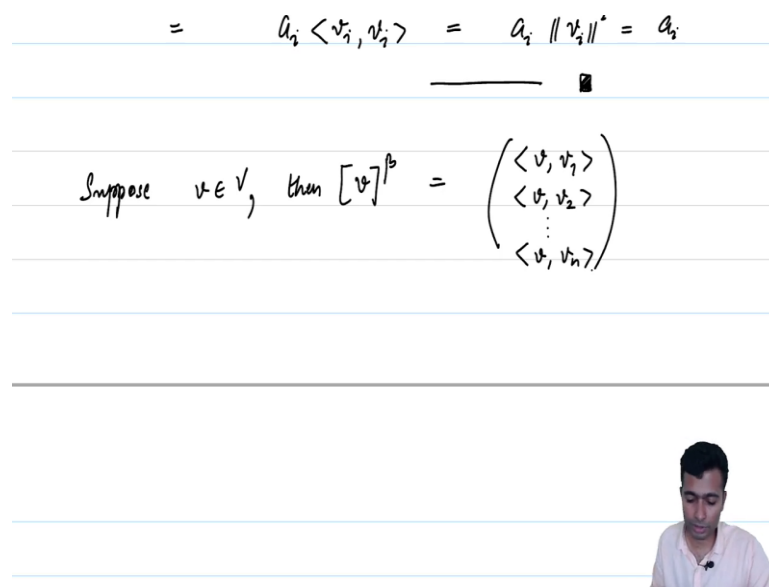 = a_i <v_i, v_i> = a_i ||v_i||² = a_i
Suppose v ∈ V, then [v]^β = ( <v, v_1>
<v, v_2>
⋮
<v, v_n> )